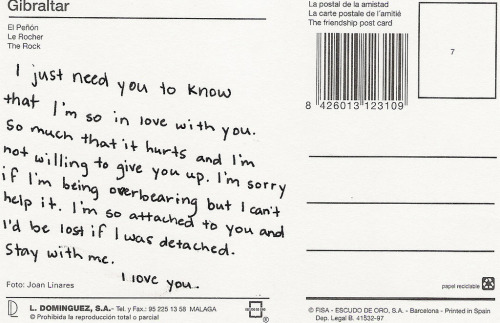 Gibraltar
El Peñón
Le Rocher
The Rock
I just need you to know
that I'm so in love with you.
So much that it hurts and I'm
not willing to give you up. I'm sorry
if I'm being overbearing but I can't
help it. I'm so attached to you and
I'd be lost if I was detached.
Stay with me.
I love you.
Foto: Joan Linares
L. DOMINGUEZ, S.A.- Tel. y Fax.: 95 225 13 58 MALAGA
© Prohibida la reproducción total o parcial
®
La postal de la amistad
La carte postale de l'amitié
The friendship post card
8 426013 123109
7
papel reciclable
© FISA - ESCUDO DE ORO, S.A. - Barcelona - Printed in Spain
Dep. Legal B. 41532-97